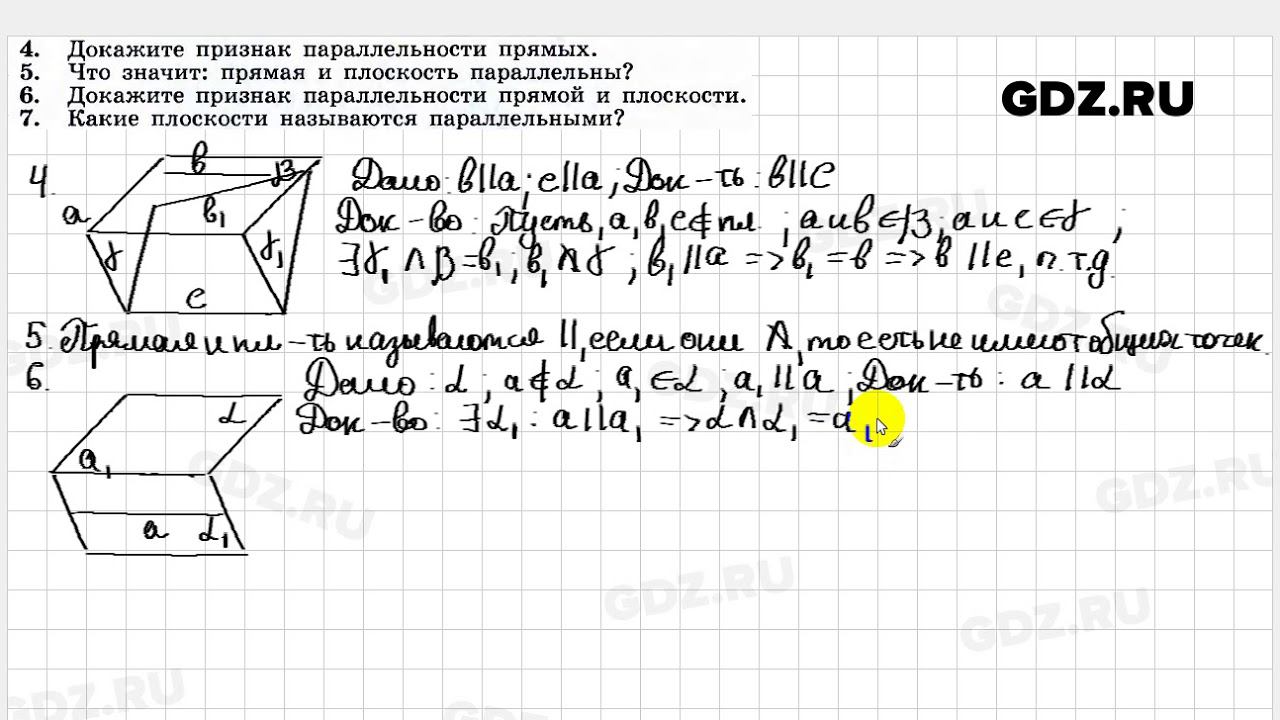 4. Докажите признак параллельности прямых.
5. Что значит: прямая и плоскость параллельны?
6. Докажите признак параллельности прямой и плоскости.
7. Какие плоскости называются параллельными?
GDZ.RU
4.
в
β
а
в₁
γ
γ₁
с
Дано: в||а; с||а; Док-ть: в||с
Док-во: Пусть, а, в, с ∉ пл. ; а и в ∈ β; а и с ∈ γ ;
∃γ₁ ∧ β = в₁; в₁ ∧ γ ; в₁ || а => в₁ = в => в || с, п.т.д.
5. Прямая и пл-ть называются ||, если они ∧, то есть не имеют общих точек.
6.
Дано: α; а ∉ α; а₁ ∈ α; а₁ || а; Док-ть: а || α
Док-во: ∃α₁ : а || а₁ => α ∧ α₁ = а₁
α
а₁
а
α₁
GDZ.RU
GDZ.RU
GDZ.RU
GDZ.RU
GDZ.RU
GDZ.RU
GDZ.RU